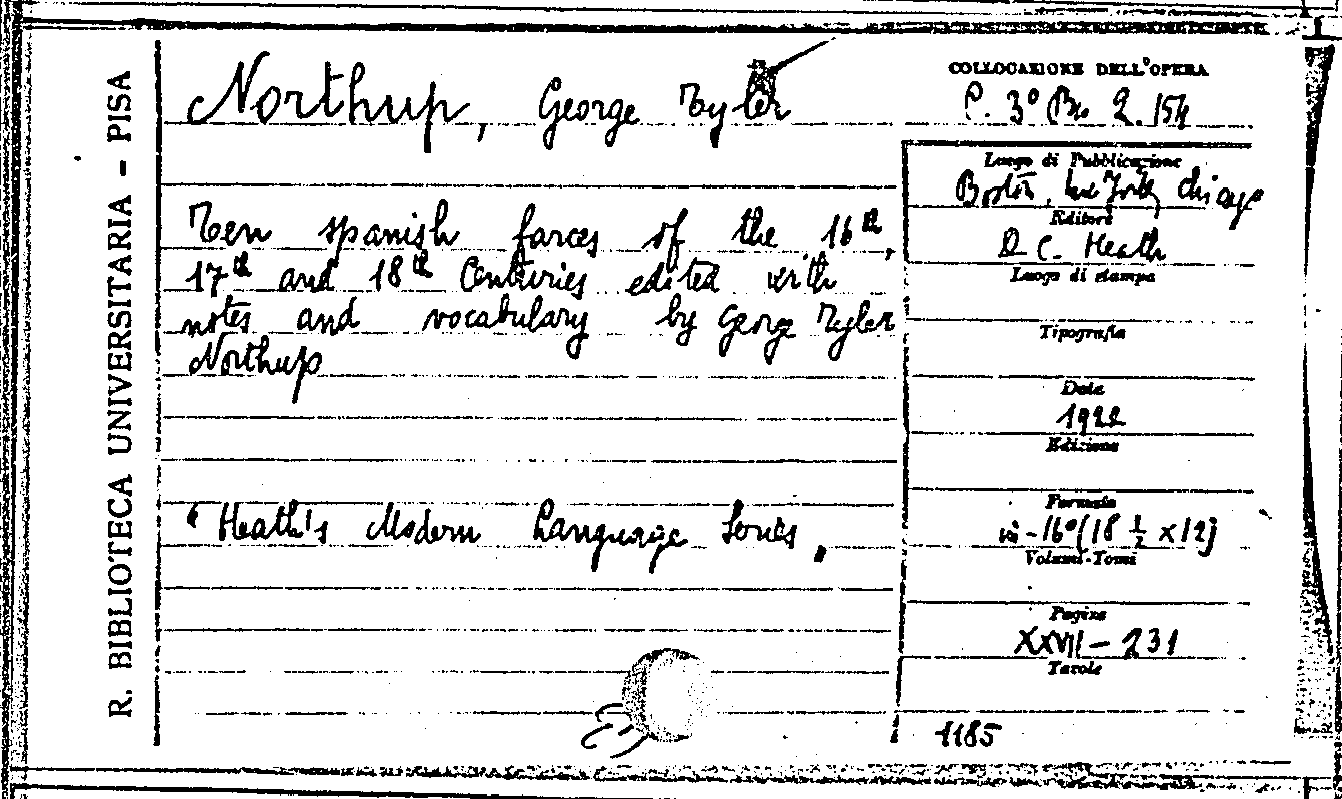 R. BIBLIOTECA UNIVERSITARIA - PISA
Northup, George Tyler
Ten spanish farces of the 16th,
17th and 18th Centuries edited with
notes and vocabulary by George Tyler
Northup
"Heath's Modern Language Series"
COLLOCAZIONE DELL'OPERA
P. 3° Bn 2. 154
Luogo di Pubblicazione
Boston, New York, Chicago
Editore
D. C. Heath
Luogo di stampa
Tipografia
Data
1922
Edizione
Formato
in-16° (18 ½ x 12)
Volumi-Tomi
Pagine
XXVII - 231
Tavole
1185